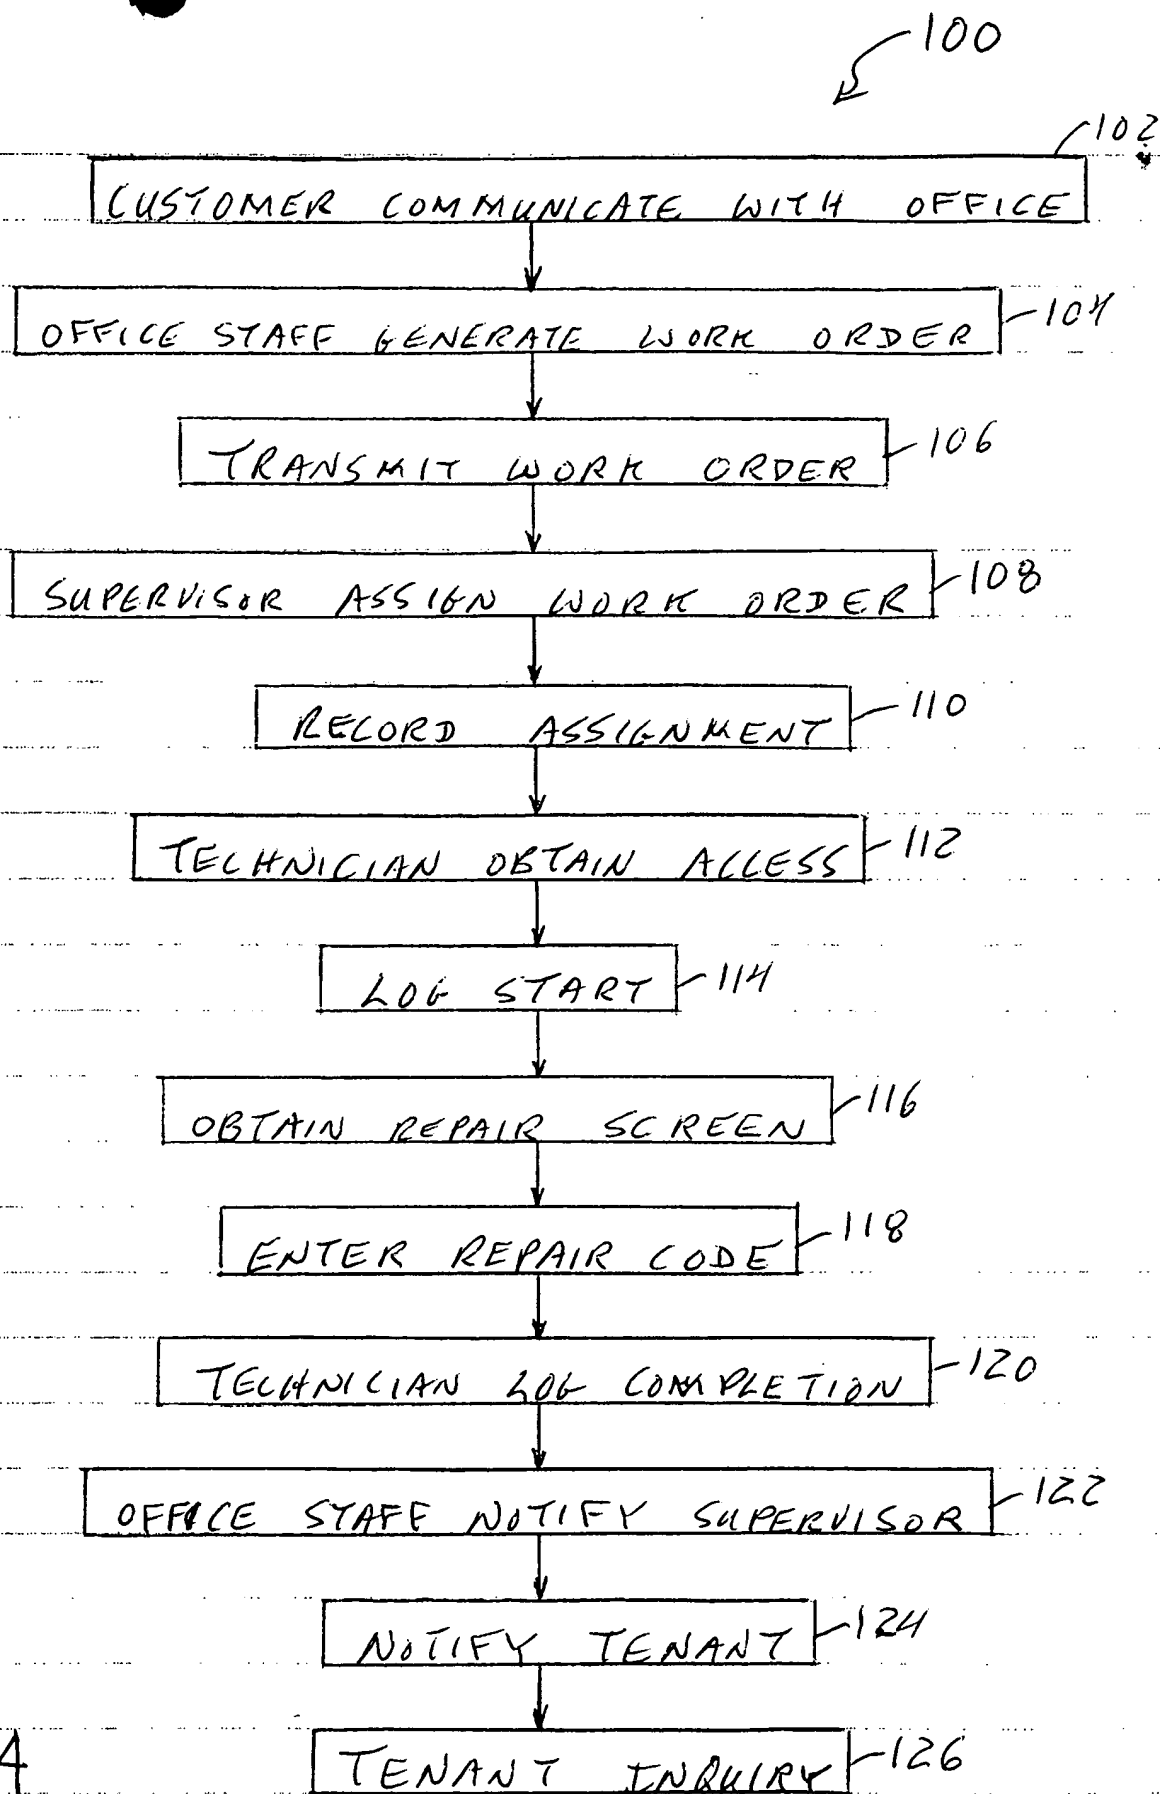 100
102
CUSTOMER COMMUNICATE WITH OFFICE
OFFICE STAFF GENERATE WORK ORDER 104
TRANSMIT WORK ORDER 106
SUPERVISOR ASSIGN WORK ORDER 108
RECORD ASSIGNMENT 110
TECHNICIAN OBTAIN ACCESS 112
LOG START 114
OBTAIN REPAIR SCREEN 116
ENTER REPAIR CODE 118
TECHNICIAN LOG COMPLETION 120
OFFICE STAFF NOTIFY SUPERVISOR 122
NOTIFY TENANT 124
TENANT INQUIRY 126
4